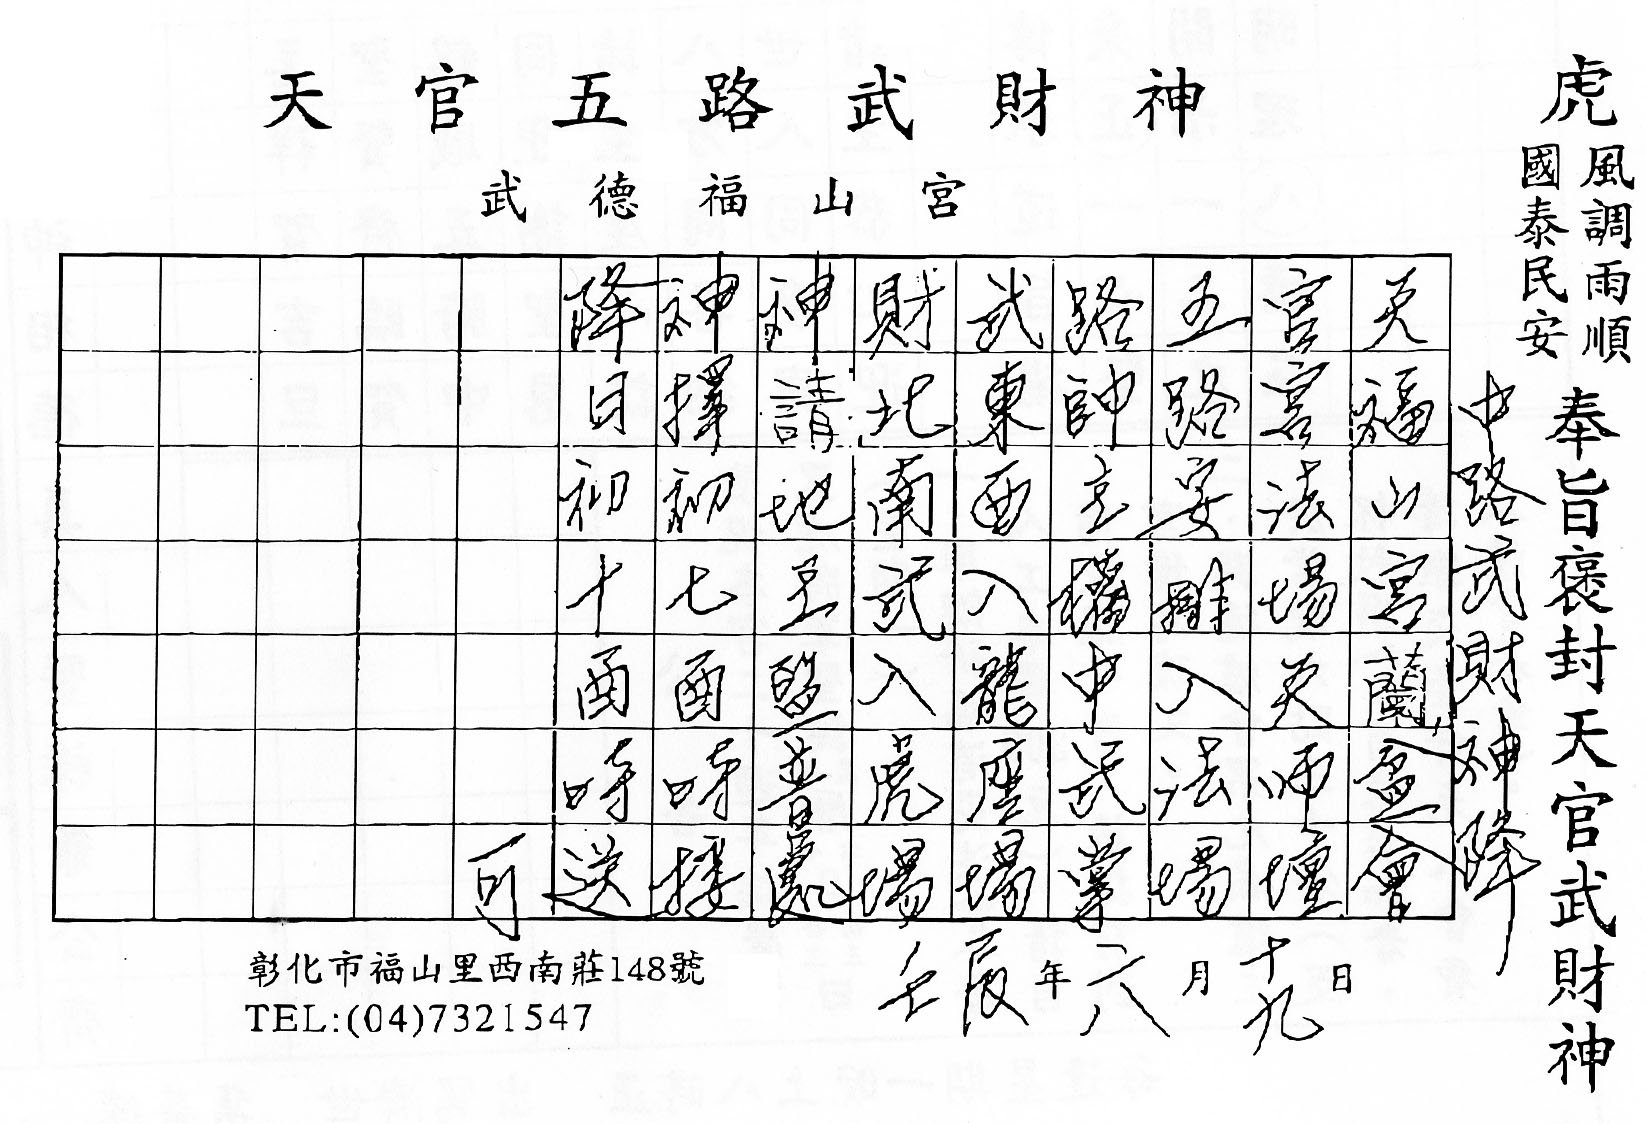 天官五路武財神
武德福山宮
虎
風調雨順
國泰民安
奉旨褒封天官武財神
中路武財神降
天福山宮蘭盆會
官宮法場天師壇
五路安入法場
路帥主中武掌
武東西入龍座場
財北南武入虎場
神請地主監普處
神擇初七酉時接
降日初十酉時送
可
壬辰年六月十九日
彰化市福山里西南莊148號
TEL:(04)7321547